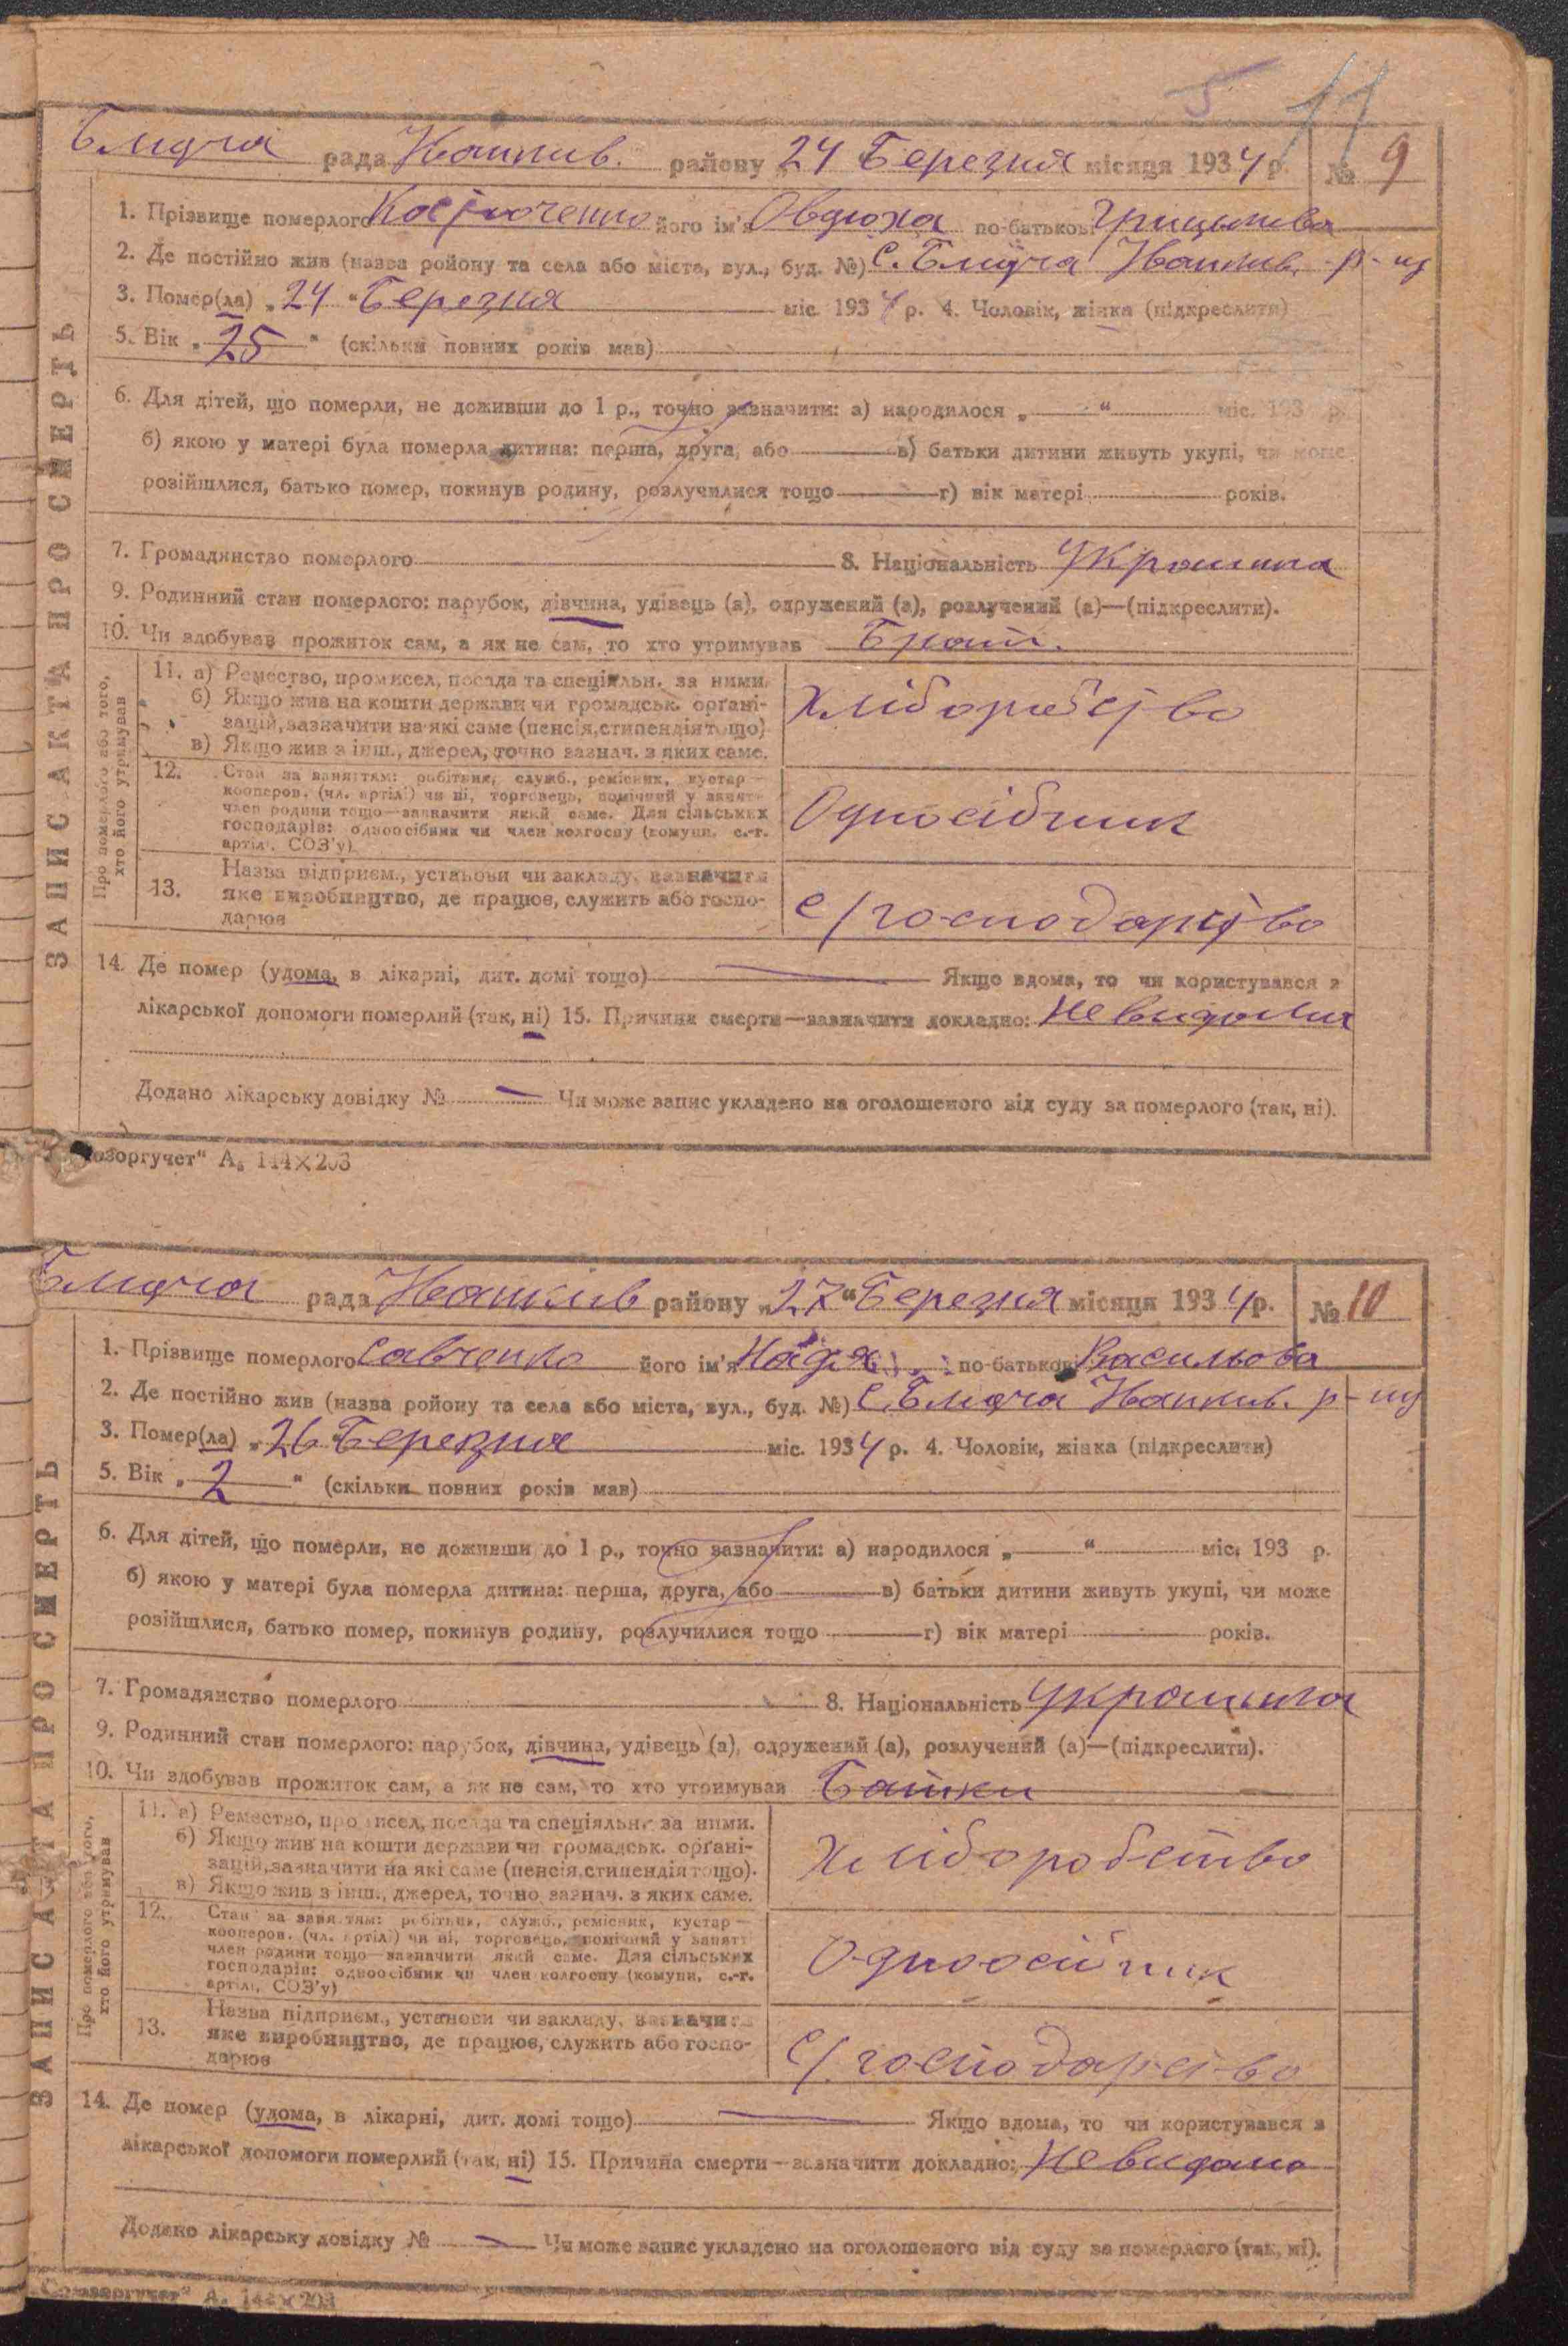 5 11
Блидча рада Іванків. району „24 Березня місяця 1934 р. № 9
1. Прізвище померлого Костюченко його ім'я Овдюха по-батькові Грицькова
2. Де постійно жив (назва ройону та села або міста, вул., буд. №) С. Блидча Іванків. р-ну
3. Помер(ла) „24“ Березня міс. 1934 р. 4. Чоловік, жінка (підкреслити)
5. Вік „25“ (скільки повних років мав)
6. Для дітей, що померли, не доживши до 1 р., точно зазначити: а) народилося „ “ міс. 193 р.
б) якою у матері була померла дитина: перша, друга, або в) батьки дитини живуть укупі, чи може
розійшлися, батько помер, покинув родину, розлучилися тощо г) вік матері років.
7. Громадянство померлого 8. Національність Українка
9. Родинний стан померлого: парубок, дівчина, удівець (а), одружений (а), розлучений (а)—(підкреслити).
10. Чи здобував прожиток сам, а як не сам, то хто утримував Брат.
ЗАПИС АКТА ПРО СМЕРТЬ
Про померлого або того,
хто його утримував
11. а) Ремество, промисел, посада та спеціяльн. за ними.
б) Якщо жив на кошти держави чи громадськ. орґані-
зацій, зазначити на які саме (пенсія, стипендія тощо)
в) Якщо жив з інш., джерел, точно зазнач. з яких саме.
Хліборобство
12. Стан за заняттям: робітник, служб., ремісник, кустар—
кооперов. (чл. артілі) чи ні, торговець, помічний у занят.
член родини тощо—зазначити який саме. Для сільських
господарів: одноосібник чи член колгоспу (комуни, с.-г.
артілі, СОЗ'у)
Односібник
13. Назва підприєм., установи чи закладу, зазначити
яке виробництво, де працює, служить або госпо-
дарює
С/господарство
14. Де помер (удома, в лікарні, дит. домі тощо) Якщо вдома, то чи користувався з
лікарської допомоги померлий (так, ні) 15. Причина смерти—зазначити докладно: Невидома
Додано лікарську довідку № — Чи може запис укладено на оголошеного від суду за померлого (так, ні).
озоргучет“ А₅ 144×203
Блидча рада Іванків району „27“ Березня місяця 1934 р. № 10
1. Прізвище померлого Савченко його ім'я Надя по-батькові Васильова
2. Де постійно жив (назва ройону та села або міста, вул., буд. №) С. Блидча Іванків. р-ну
3. Помер(ла) „26“ Березня міс. 1934 р. 4. Чоловік, жінка (підкреслити)
5. Вік „2“ (скільки повних років мав)
6. Для дітей, що померли, не доживши до 1 р., точно зазначити: а) народилося „ “ міс. 193 р.
б) якою у матері була померла дитина: перша, друга, або в) батьки дитини живуть укупі, чи може
розійшлися, батько помер, покинув родину, розлучилися тощо г) вік матері років.
7. Громадянство померлого 8. Національність Українка
9. Родинний стан померлого: парубок, дівчина, удівець (а), одружений (а), розлучений (а)—(підкреслити).
10. Чи здобував прожиток сам, а як не сам, то хто утримував Батьки
ЗАПИС АКТА ПРО СМЕРТЬ
Про померлого або того,
хто його утримував
11. а) Ремество, промисел, посада та спеціяльн. за ними.
б) Якщо жив на кошти держави чи громадськ. орґані-
зацій, зазначити на які саме (пенсія, стипендія тощо).
в) Якщо жив з інш., джерел, точно зазнач. з яких саме.
Хліборобство
12. Стан за заняттям: робітник, служб., ремісник, кустар—
кооперов. (чл. артілі) чи ні, торговець, помічний у занятті
член родини тощо—зазначити який саме. Для сільських
господарів: одноосібник чи член колгоспу (комуни, с.-г.
артілі, СОЗ'у)
Одноосібник
13. Назва підприєм., установи чи закладу, зазначити
яке виробництво, де працює, служить або госпо-
дарює
С/господарство
14. Де помер (удома, в лікарні, дит. домі тощо) Якщо вдома, то чи користувався з
лікарської допомоги померлий (так, ні) 15. Причина смерти—зазначити докладно: Невидома
Додано лікарську довідку № — Чи може запис укладено на оголошеного від суду за померлого (так, ні).
Союзоргучет“ А₅ 144×203